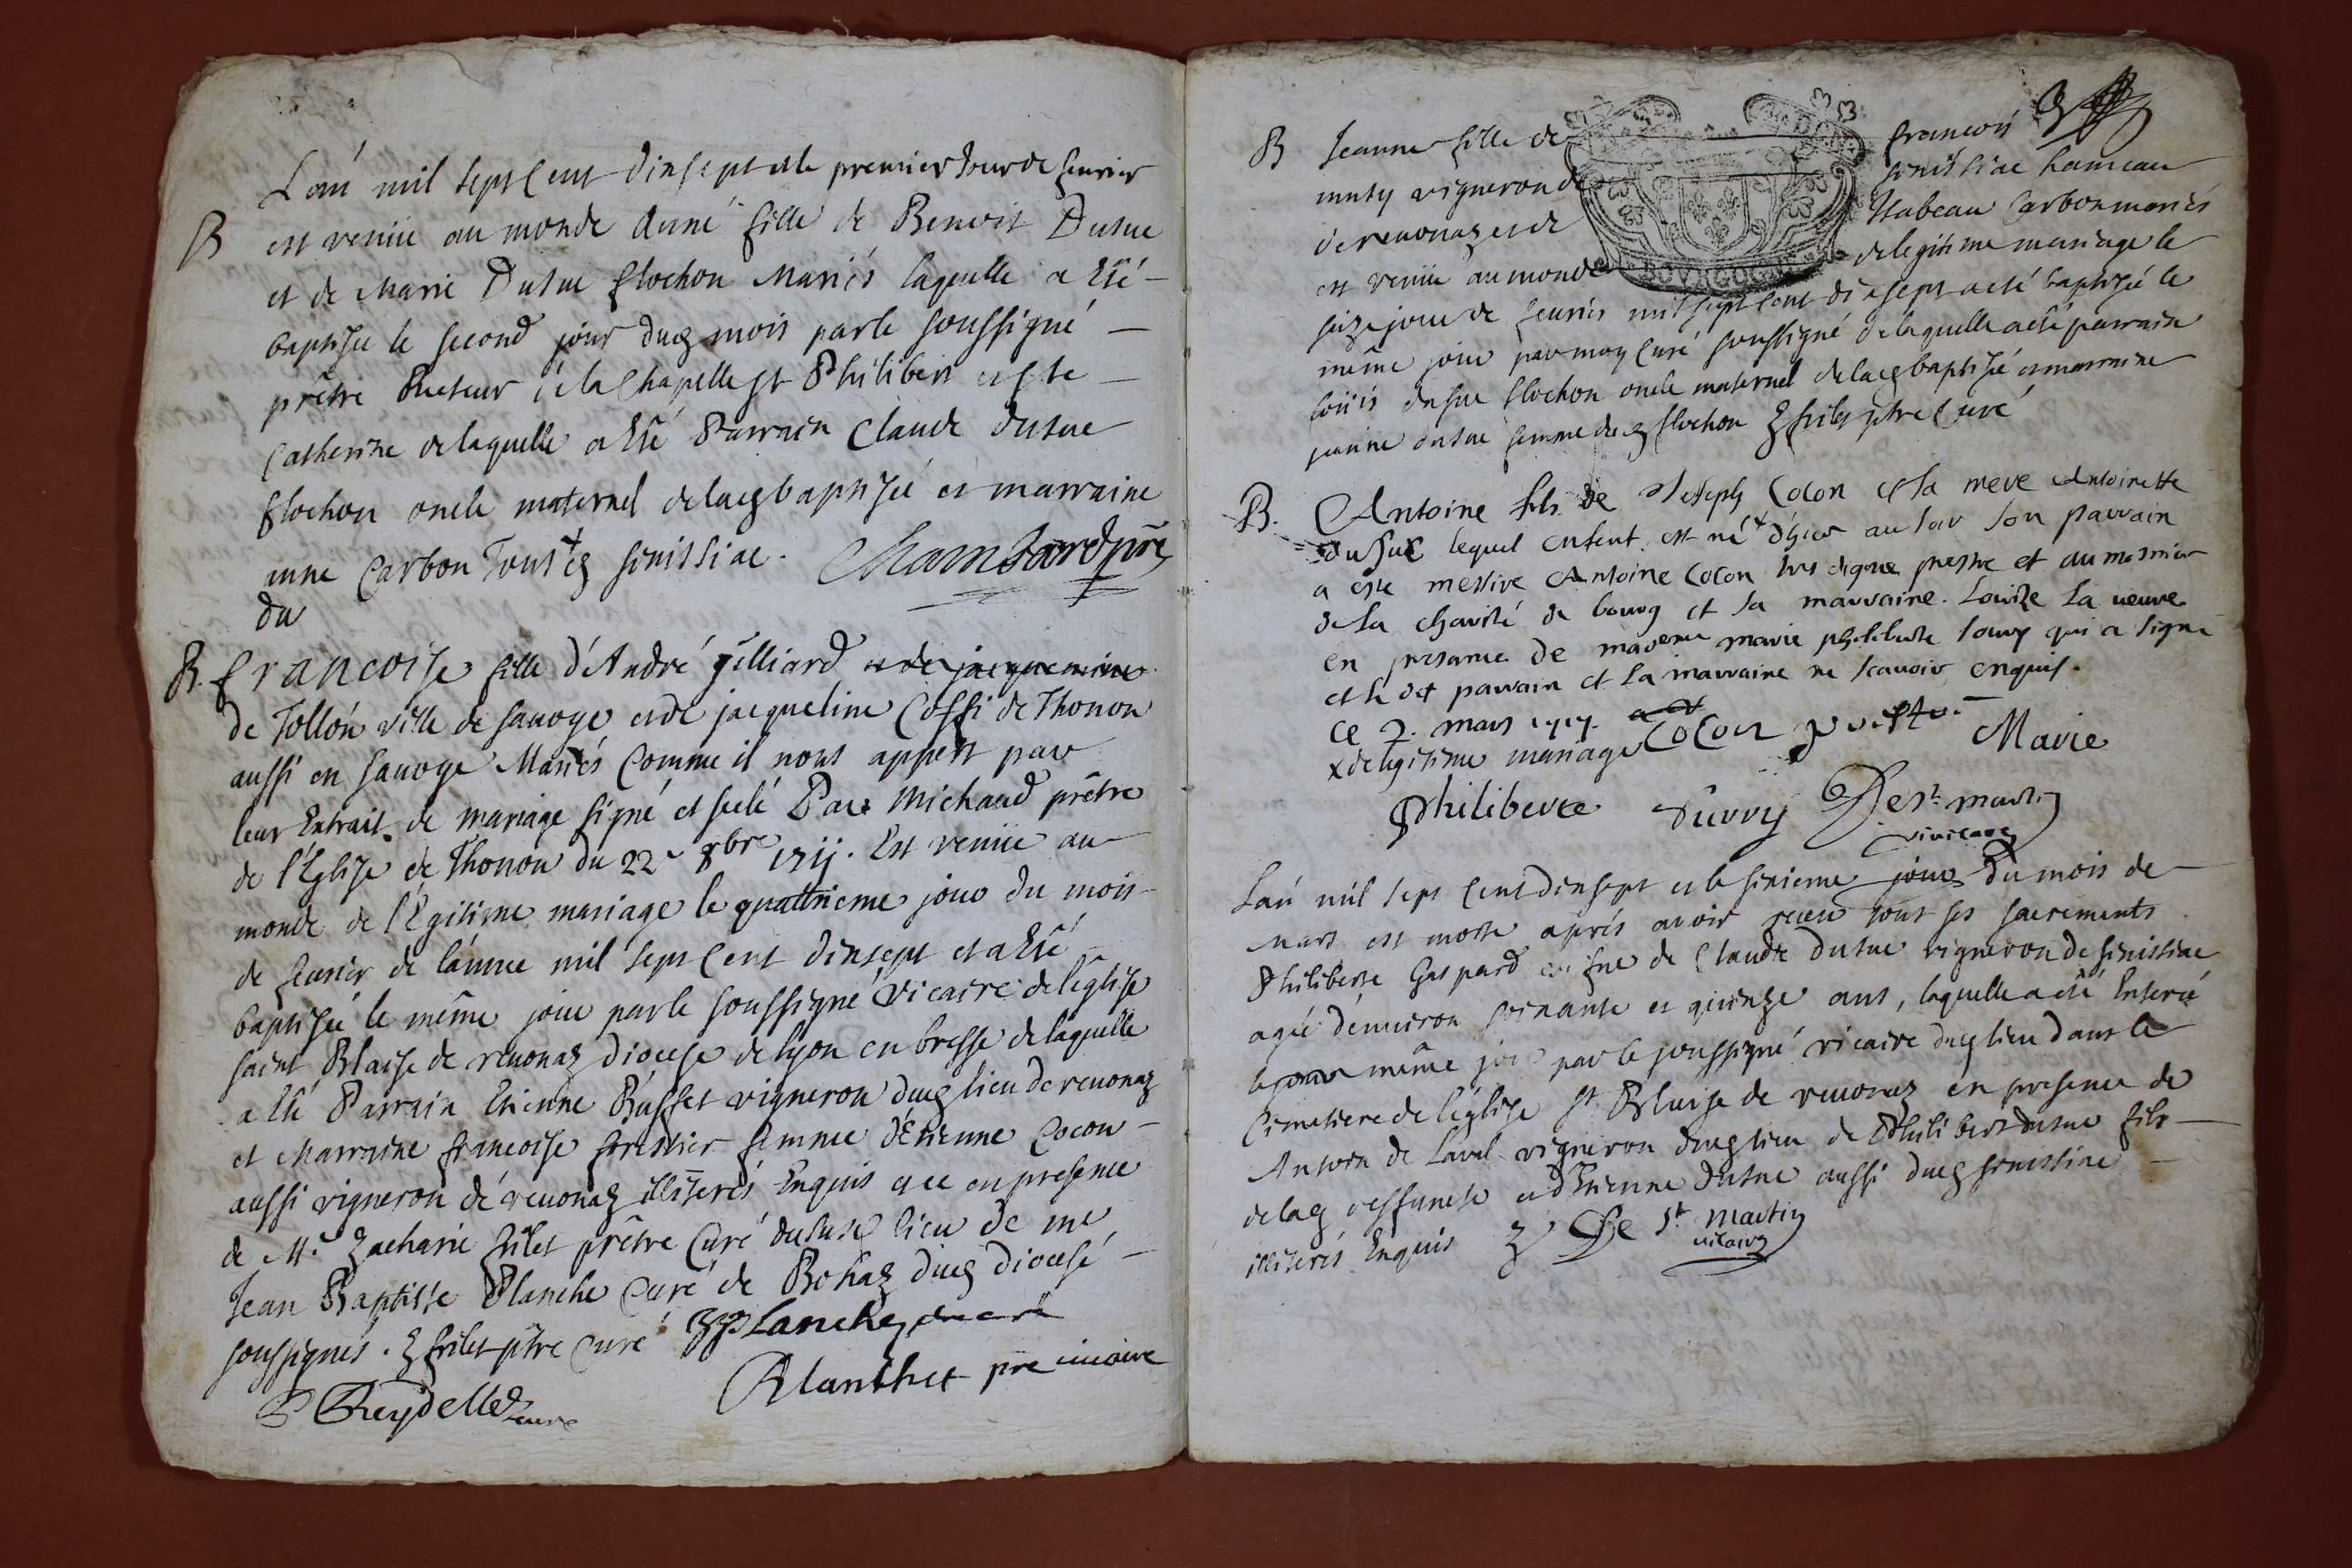 L'an mil sept Cent dinsept et le premier Jour de feurier
B est venüe au monde Anne fille de Benoit Dusue
et de Marie Dusue flochon Mariés laquelle a Esté
baptisée le second jour dud mois par le soussigné
prêtre Recteur de la Chapelle st Philibert et ste
Catherine de laquelle a Esté Parrain Claude dusue
flochon oncle maternel de lad baptisée et marraine
anne Carbon Tous dud senissiac. Chambard ptre
du
B. francoise fille d'André gilliard et de jacquemine
de Tollon ville de sauoye et de jacqueline Coffi de Thonon
aussi en sauoye Mariés Comme il nous appert par
leur Extrait de mariage signé et seelé Par Michaud prêtre
de l'Eglise de Thonon du 22e 8bre 1711. Est venüe au
monde de l'Egitime mariage le quattrieme jour du mois
de feurier de l'année mil sept Cent dinsept et a Esté
baptisée le même jour par le soussigné Vicaire de l'église
saint Blaise de reuonaz diocese de lyon en bresse de laquelle
a Esté Parrain Etienne Buffet vigneron dud lieu de reuonaz
et Marraine francoise forestier femme d'Etienne Cocon
aussi vigneron de reuonaz illiterés Enquis et ce en presence
de Mr. Zacharie frilet prêtre Curé dususd lieu de me
Jean Baptiste Planche Curé de Bohaz dud diocese
soussignés. Z frilet ptre Curé Planche curé
P Reydellet curé Blanchet pre uicaire
B Jeanne fille de francois
musy vigneron de senissiac hameau
de reuonaz et de Isabeau Carbon mariés
est venüe au monde de legitime mariage le
BOVRGOGNE
seize jour de feurier mil sept Cent dixsept a esté baptisée le
même jour par moy Curé soussigné de laquelle a esté parrain
loüis dusue flochon oncle maternel de lad baptisée et marraine
jeanne dusue femme dud flochon Z frilet ptre Curé
B. Antoine fils de Joseph Cocon et sa mere Antoinette
dusue lequel enfent est né + d'hier au soir son parrain
a este messire Antoine Cocon tres digne prestre et aumosnier
de la charité de bourg et sa marraine Louize La ueuve
en presance de marie philiberte surry qui a signé
et le dit parrain et la marraine ne scauoir enquis.
ce 2. mars 1717.
x de legitime mariage Cocon prestre Marie
Philiberte Surry De st martin
vicaire
L'an mil sept Cent dinsept et le sixieme jour du mois de
Mars est morte aprés avoir receu tout ses sacrements
Philiberte Gaspard de Claude dusue vigneron de senissiac
agée d'enuiron soixante et quinze ans, laquelle a esté Enterré
le même jour par le soussigné vicaire dud lieu dans le
Cimetiere de l'église st Blaise de reuonaz en presence de
Antoine de Laval vigneron dud lieu de Philibert dusue fils
de lad deffunte et d'Etienne dusue aussi dud senissiac
illiterés Enquis De st martin
uicaire